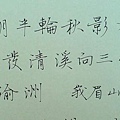 半輪秋影
發清溪向三
渝洲 我眉山